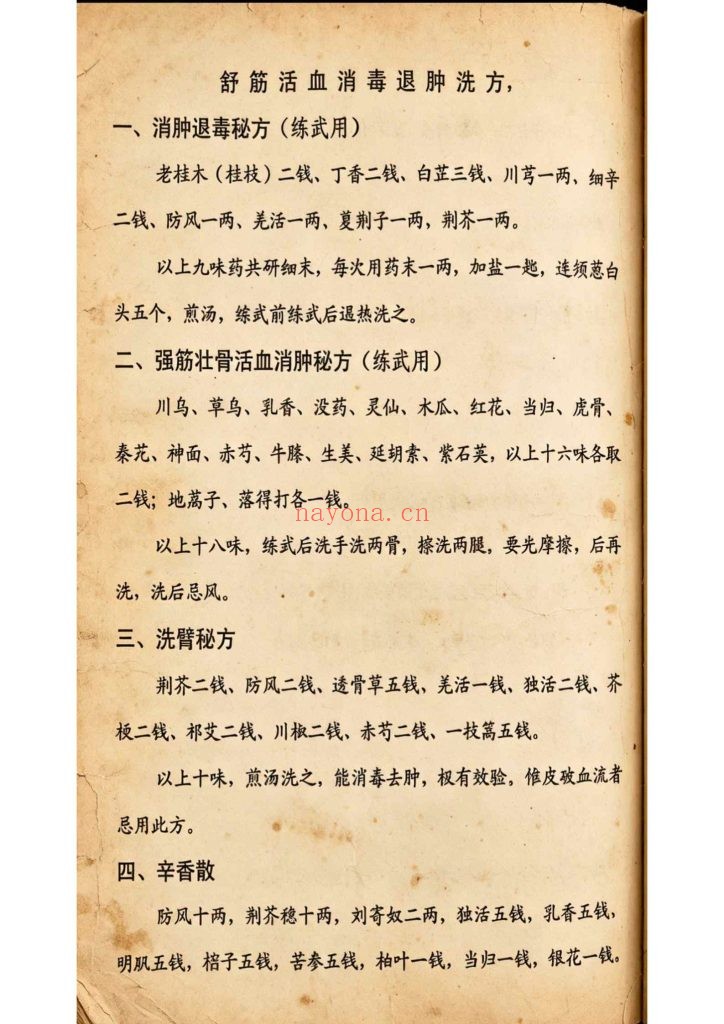 舒筋活血消毒退肿洗方，
一、消肿退毒秘方（练武用）
老桂木（桂枝）二钱、丁香二钱、白芷三钱、川芎一两、细辛
二钱、防风一两、羌活一两、蔓荆子一两，荆芥一两。
以上九味药共研细末，每次用药末一两，加盐一匙，连须葱白
头五个，煎汤，练武前练武后退热洗之。
二、强筋壮骨活血消肿秘方（练武用）
川乌、草乌、乳香、没药、灵仙、木瓜、红花、当归、虎骨、
秦芃、神面、赤芍、牛膝、生美、延胡索、紫石英，以上十六味各取
二钱；地蒿子、落得打各一钱。
nayona.cn
以上十八味，练武后洗手洗两骨，擦洗两腿，要光摩擦，后再
洗，洗后忌风。
三、洗臂秘方
荆芥二钱、防风二钱、透骨草五钱，羌活一钱、独活二钱、芥
梗二钱、祁艾二钱、川椒二钱、赤芍二钱、一枝篙五钱。
以上十味，煎汤洗之，能消毒去肿，极有效验。惟皮破血流者
忌用此方。
四、辛香散
防风十两，荆芥穗十两，刘寄奴二两，独活五钱，乳香五钱，
明矾五钱，棓子五钱，苦参五钱，柏叶一钱，当归一钱，银花一钱。